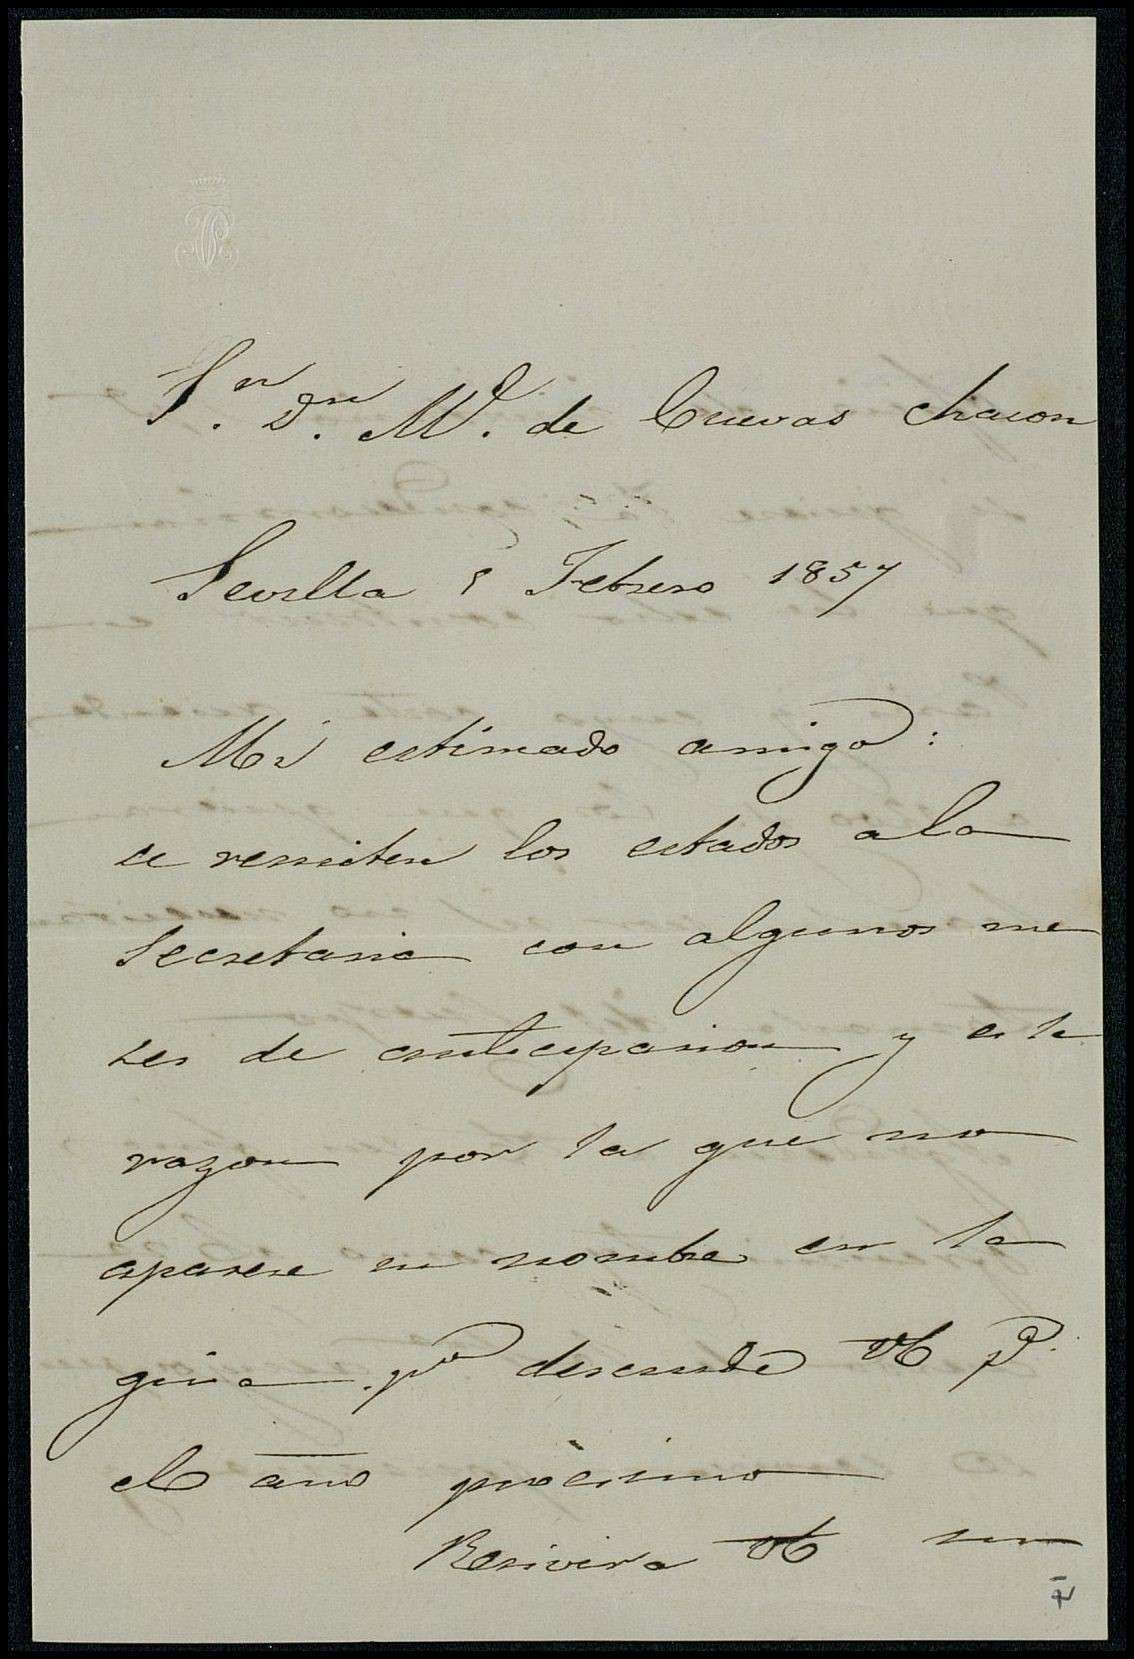 Sr. Dn. Ml. de Cuevas Chacon
Sevilla 8 Febrero 1857
Mi estimado amigo:
se remiten los estados a la
secretaria con algunos me
ses de anticipasion y es la
razon por la que no
aparese su nombre en la
guia po descuide Vd pa.
el año procsimo
Resivira Vd un